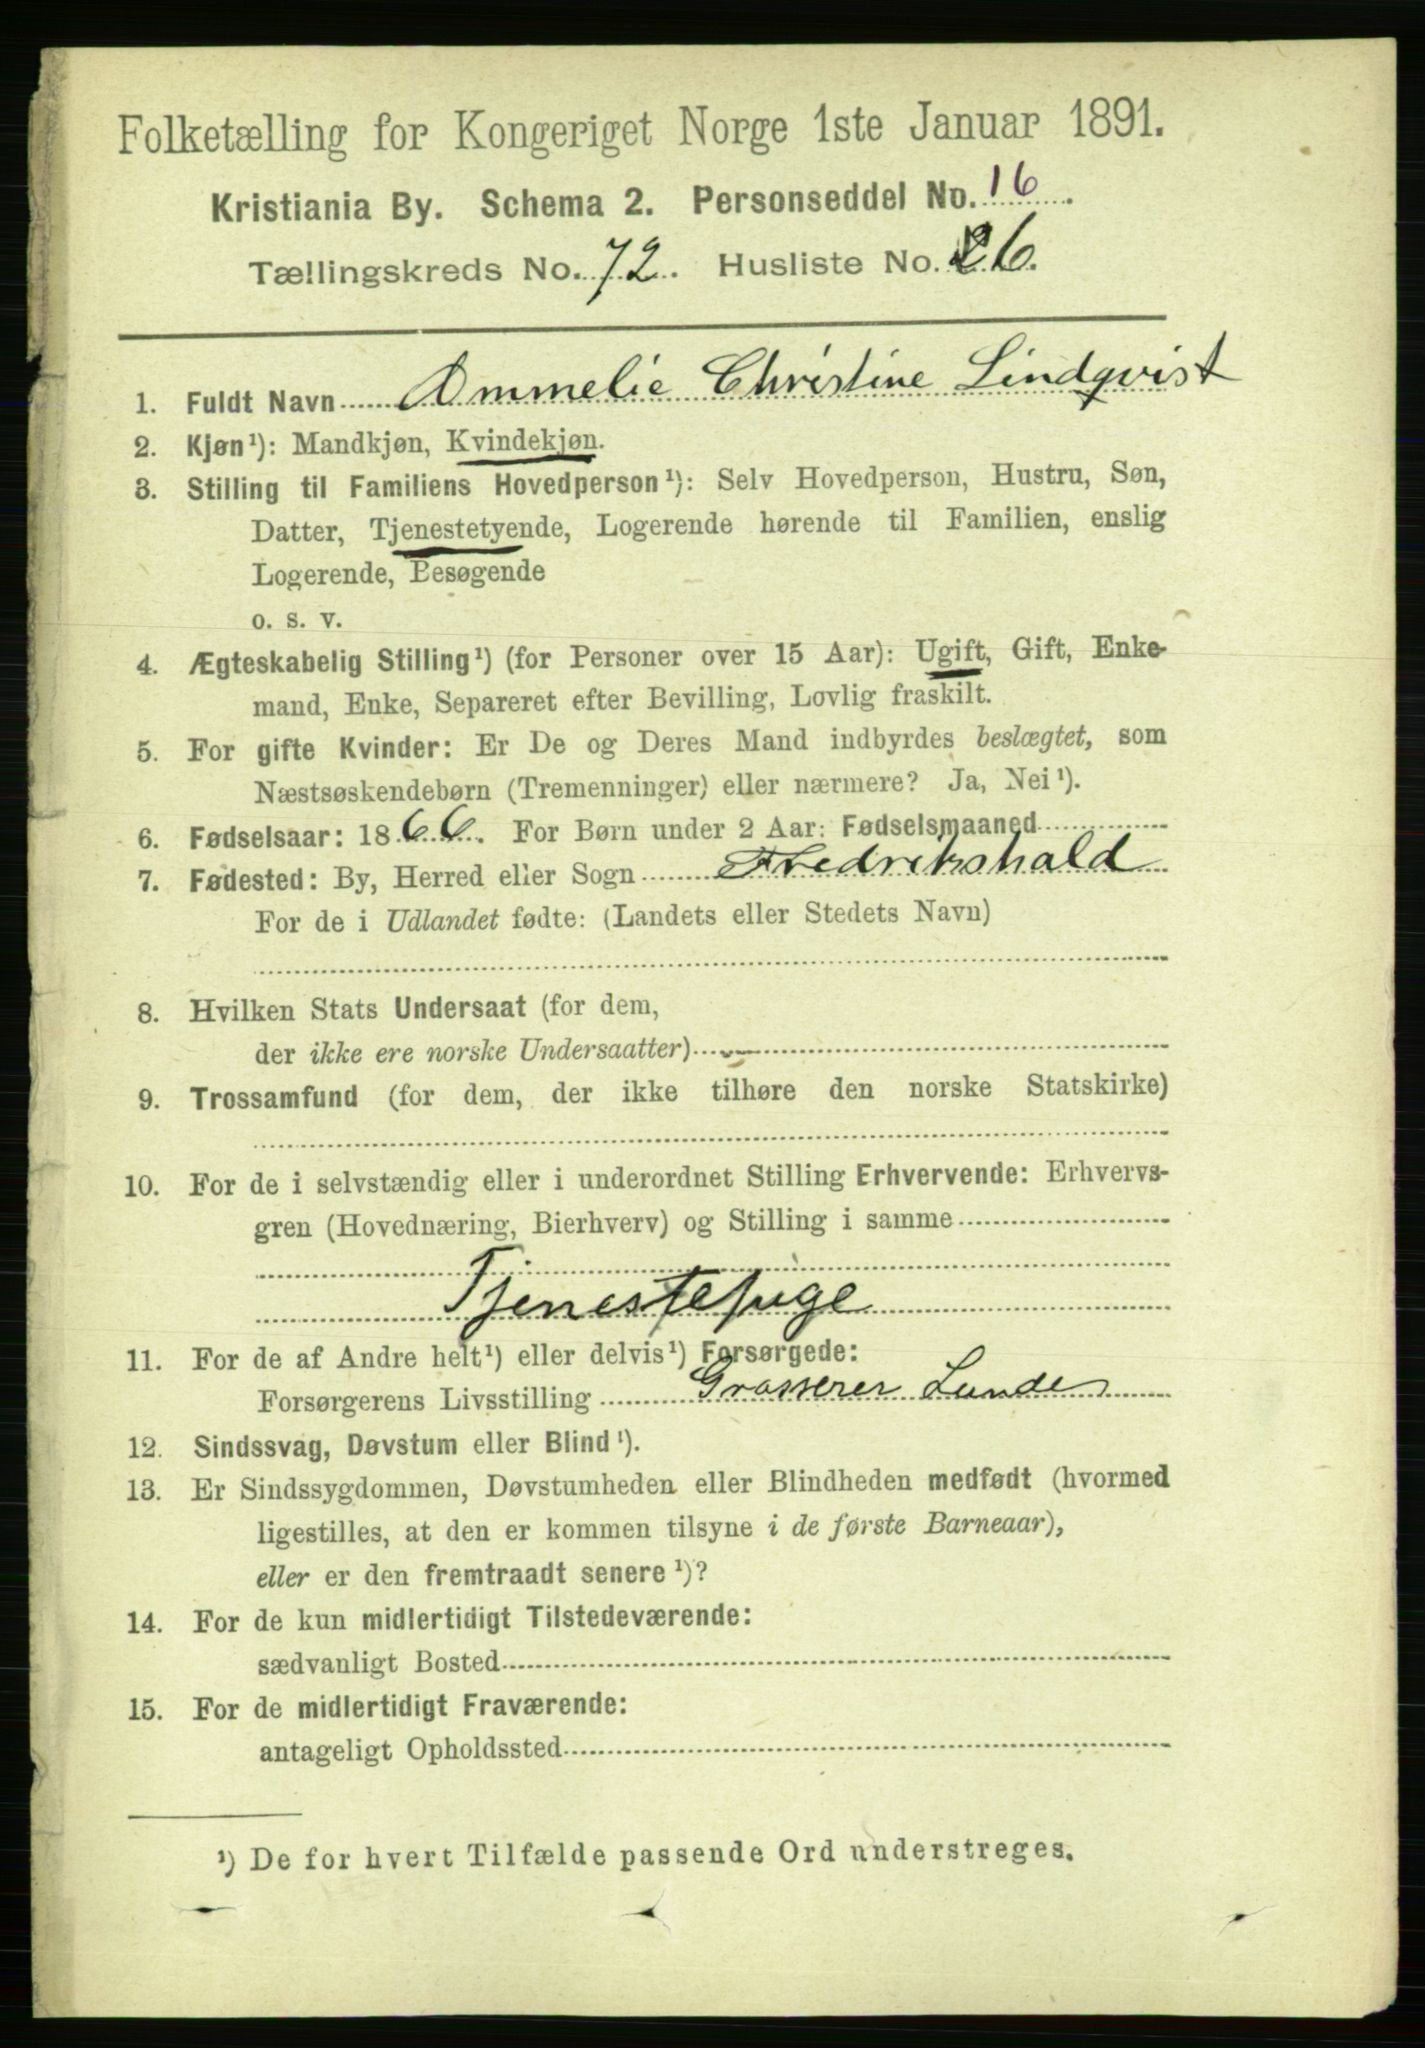 Folketælling for Kongeriget Norge 1ste Januar 1891.
Kristiania By. Schema 2. Personseddel No. 16.
Tællingskreds No. 72. Husliste No. 26.
1. Fuldt Navn Ammelie Christine Lindqvist
2. Kjøn¹): Mandkjøn, Kvindekjøn.
3. Stilling til Familiens Hovedperson¹): Selv Hovedperson, Hustru, Søn,
Datter, Tjenestetyende, Logerende hørende til Familien, enslig
Logerende, Besøgende
o. s. v.
4. Ægteskabelig Stilling¹) (for Personer over 15 Aar): Ugift, Gift, Enke-
mand, Enke, Separeret efter Bevilling, Lovlig fraskilt.
5. For gifte Kvinder: Er De og Deres Mand indbyrdes beslægtet, som
Næstsøskendebørn (Tremenninger) eller nærmere? Ja, Nei¹).
6. Fødselsaar: 1866. For Børn under 2 Aar: Fødselsmaaned
7. Fødested: By, Herred eller Sogn Fredrikshald
For de i Udlandet fødte: (Landets eller Stedets Navn)
8. Hvilken Stats Undersaat (for dem,
der ikke ere norske Undersaatter)
9. Trossamfund (for dem, der ikke tilhøre den norske Statskirke)
10. For de i selvstændig eller i underordnet Stilling Erhvervende: Erhvervs-
gren (Hovednæring, Bierhverv) og Stilling i samme
Tjenestepige
11. For de af Andre helt¹) eller delvis¹) Forsørgede:
Forsørgerens Livsstilling Grosserer Lunde
12. Sindssvag, Døvstum eller Blind¹).
13. Er Sindssygdommen, Døvstumheden eller Blindheden medfødt (hvormed
ligestilles, at den er kommen tilsyne i de første Barneaar),
eller er den fremtraadt senere¹)?
14. For de kun midlertidigt Tilstedeværende:
sædvanligt Bosted
15. For de midlertidigt Fraværende:
antageligt Opholdssted
¹) De for hvert Tilfælde passende Ord understreges.